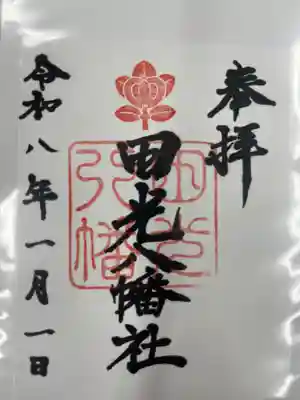 奉拝
田光八幡社
令和八年一月一日
田光
八幡